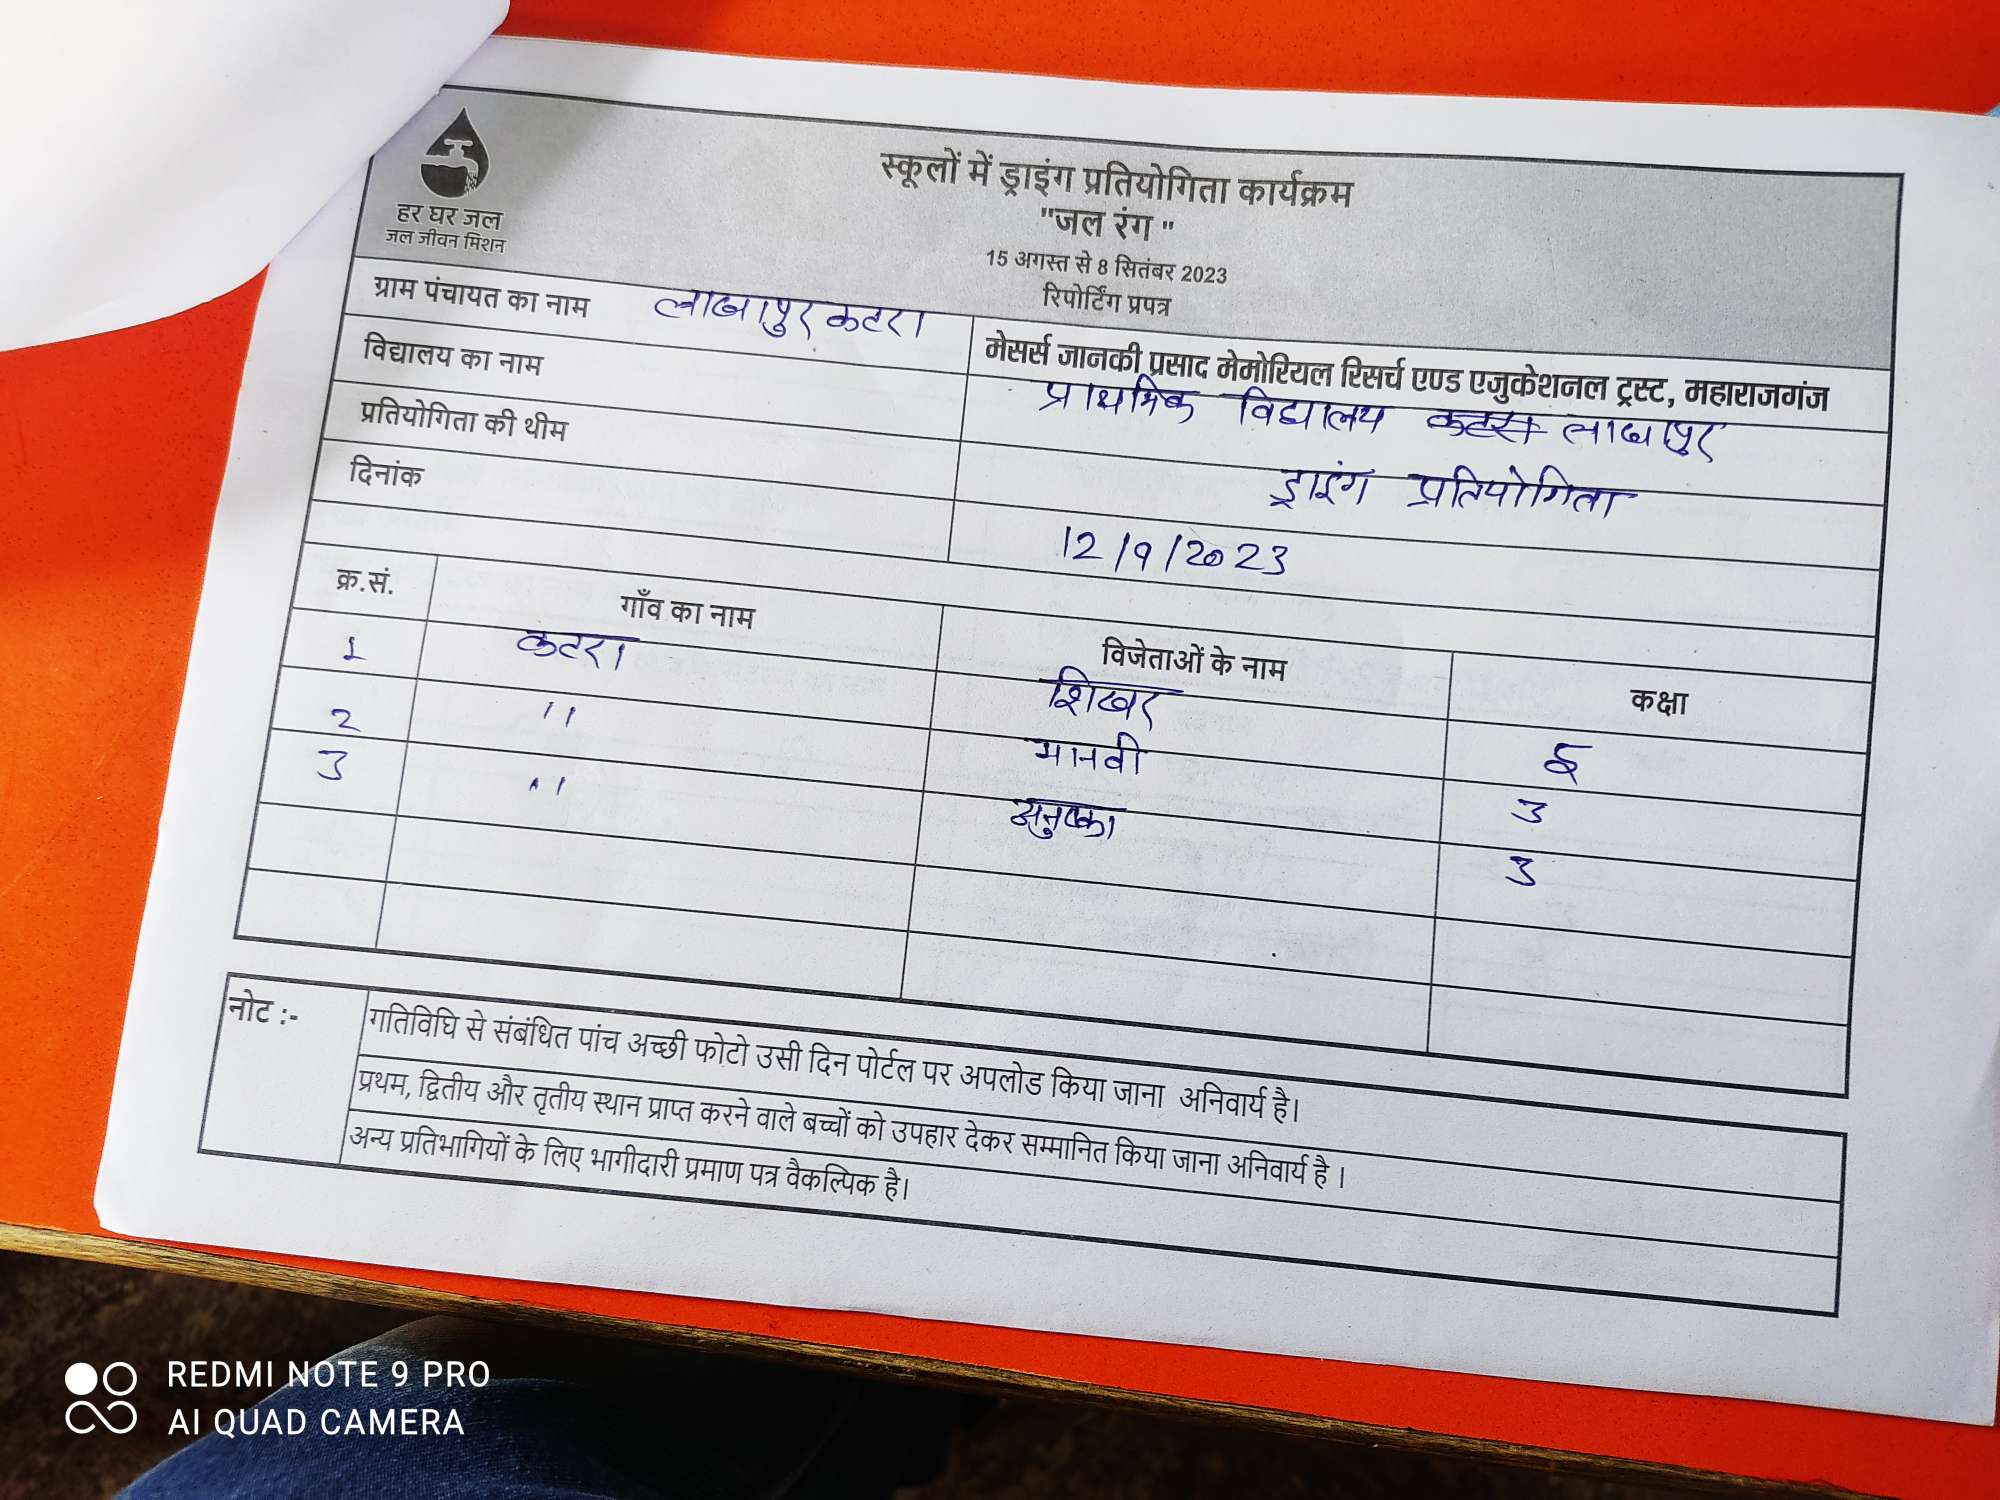 हर घर जल
जल जीवन मिशन
स्कूलों में ड्राइंग प्रतियोगिता कार्यक्रम
"जल रंग "
15 अगस्त से 8 सितंबर 2023
रिपोर्टिंग प्रपत्र
ग्राम पंचायत का नाम लाखापुर कटरा
मेसर्स जानकी प्रसाद मेमोरियल रिसर्च एण्ड एजुकेशनल ट्रस्ट, महाराजगंज
विद्यालय का नाम प्राथमिक विद्यालय लाखापुर
प्रतियोगिता की थीम ड्राइंग प्रतियोगिता
दिनांक 12/9/2023
क्र.सं. गाँव का नाम विजेताओं के नाम कक्षा
1 कटरा शिखर
2 " मानवी 3
3 " अनुष्का 3
नोट :- गतिविधि से संबंधित पांच अच्छी फोटो उसी दिन पोर्टल पर अपलोड किया जाना अनिवार्य है।
प्रथम, द्वितीय और तृतीय स्थान प्राप्त करने वाले बच्चों को उपहार देकर सम्मानित किया जाना अनिवार्य है ।
अन्य प्रतिभागियों के लिए भागीदारी प्रमाण पत्र वैकल्पिक है।
REDMI NOTE 9 PRO
AI QUAD CAMERA